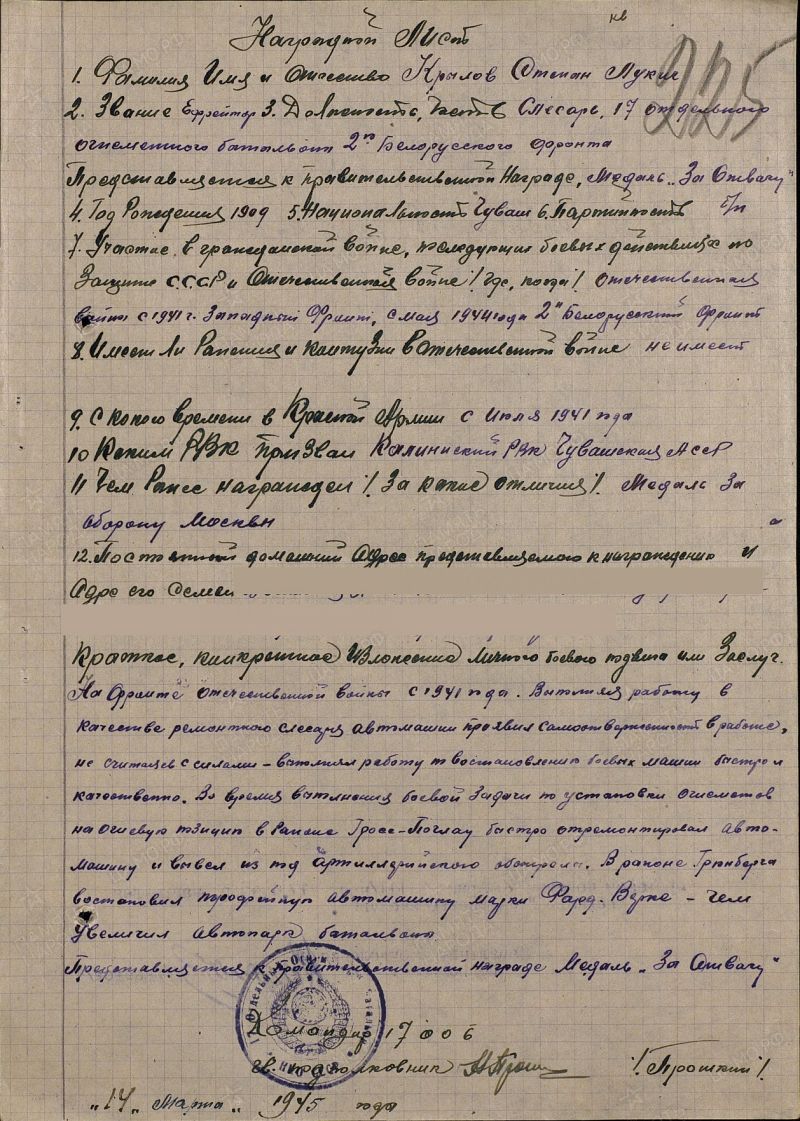 кв
225
Наградной Лист
1. Фамилия Имя и Отчество Крылов Степан Лукич
2. Звание Ефрейтор 3. Должность, часть Слесарь, 17 отдельного
огнеметного батальона 2го Белорусского фронта
Представляется к правительственной Награде, Медаль „За Отвагу"
4. Год Рождения 1909 5. Национальность Чуваш 6. Партийность б/п
7. Участие в гражданской войне, последующих боевых действиях по
Защите С.С.С.Р и Отечественной войне /где, когда/ отечественная
война с 1941 г. Западный фронт, с мая 1944 года 2й Белорусский фронт
8. Имеет Ли Ранения и контузии в Отечественной войне не имеет
9. С какого времени в Красной Армии с Июля 1941 года
10 Каким РВК Призван Калининский РВК Чувашская АССР
11 Чем Ранее награжден /За какие отличия/. Медаль За
оборону Москвы
12. Постоянный домашний Адрес представляемого к награждению и
Адре его Семьи
Краткое, конкретное Изложение личного боевого подвига или Заслуг.
На фронте отечественной войны с 1941 года. Выполняя работу в
качестве ремонтного слесаря автомашин проявил самоотверженность в работе,
не считаясь с силами – выполнял работу по востановлению боевых машин быстро и
качественно. Во время выполнения боевой задачи по установки огнеметов
на огневую позицию в Районе Гросс-Поглау быстро отремонтировал авто-
машину и вывел из под артиллерийского обстрела. В районе Грюнберга
востановил трофейную автомашину марки Форд-Верке – чем
увеличил автопарк батальона
Представляется к правительственной награде Медаль „За Отвагу"
Командир 17 ООБ
гв. подполковник /Прошкин/
„14" Марта 1945 года